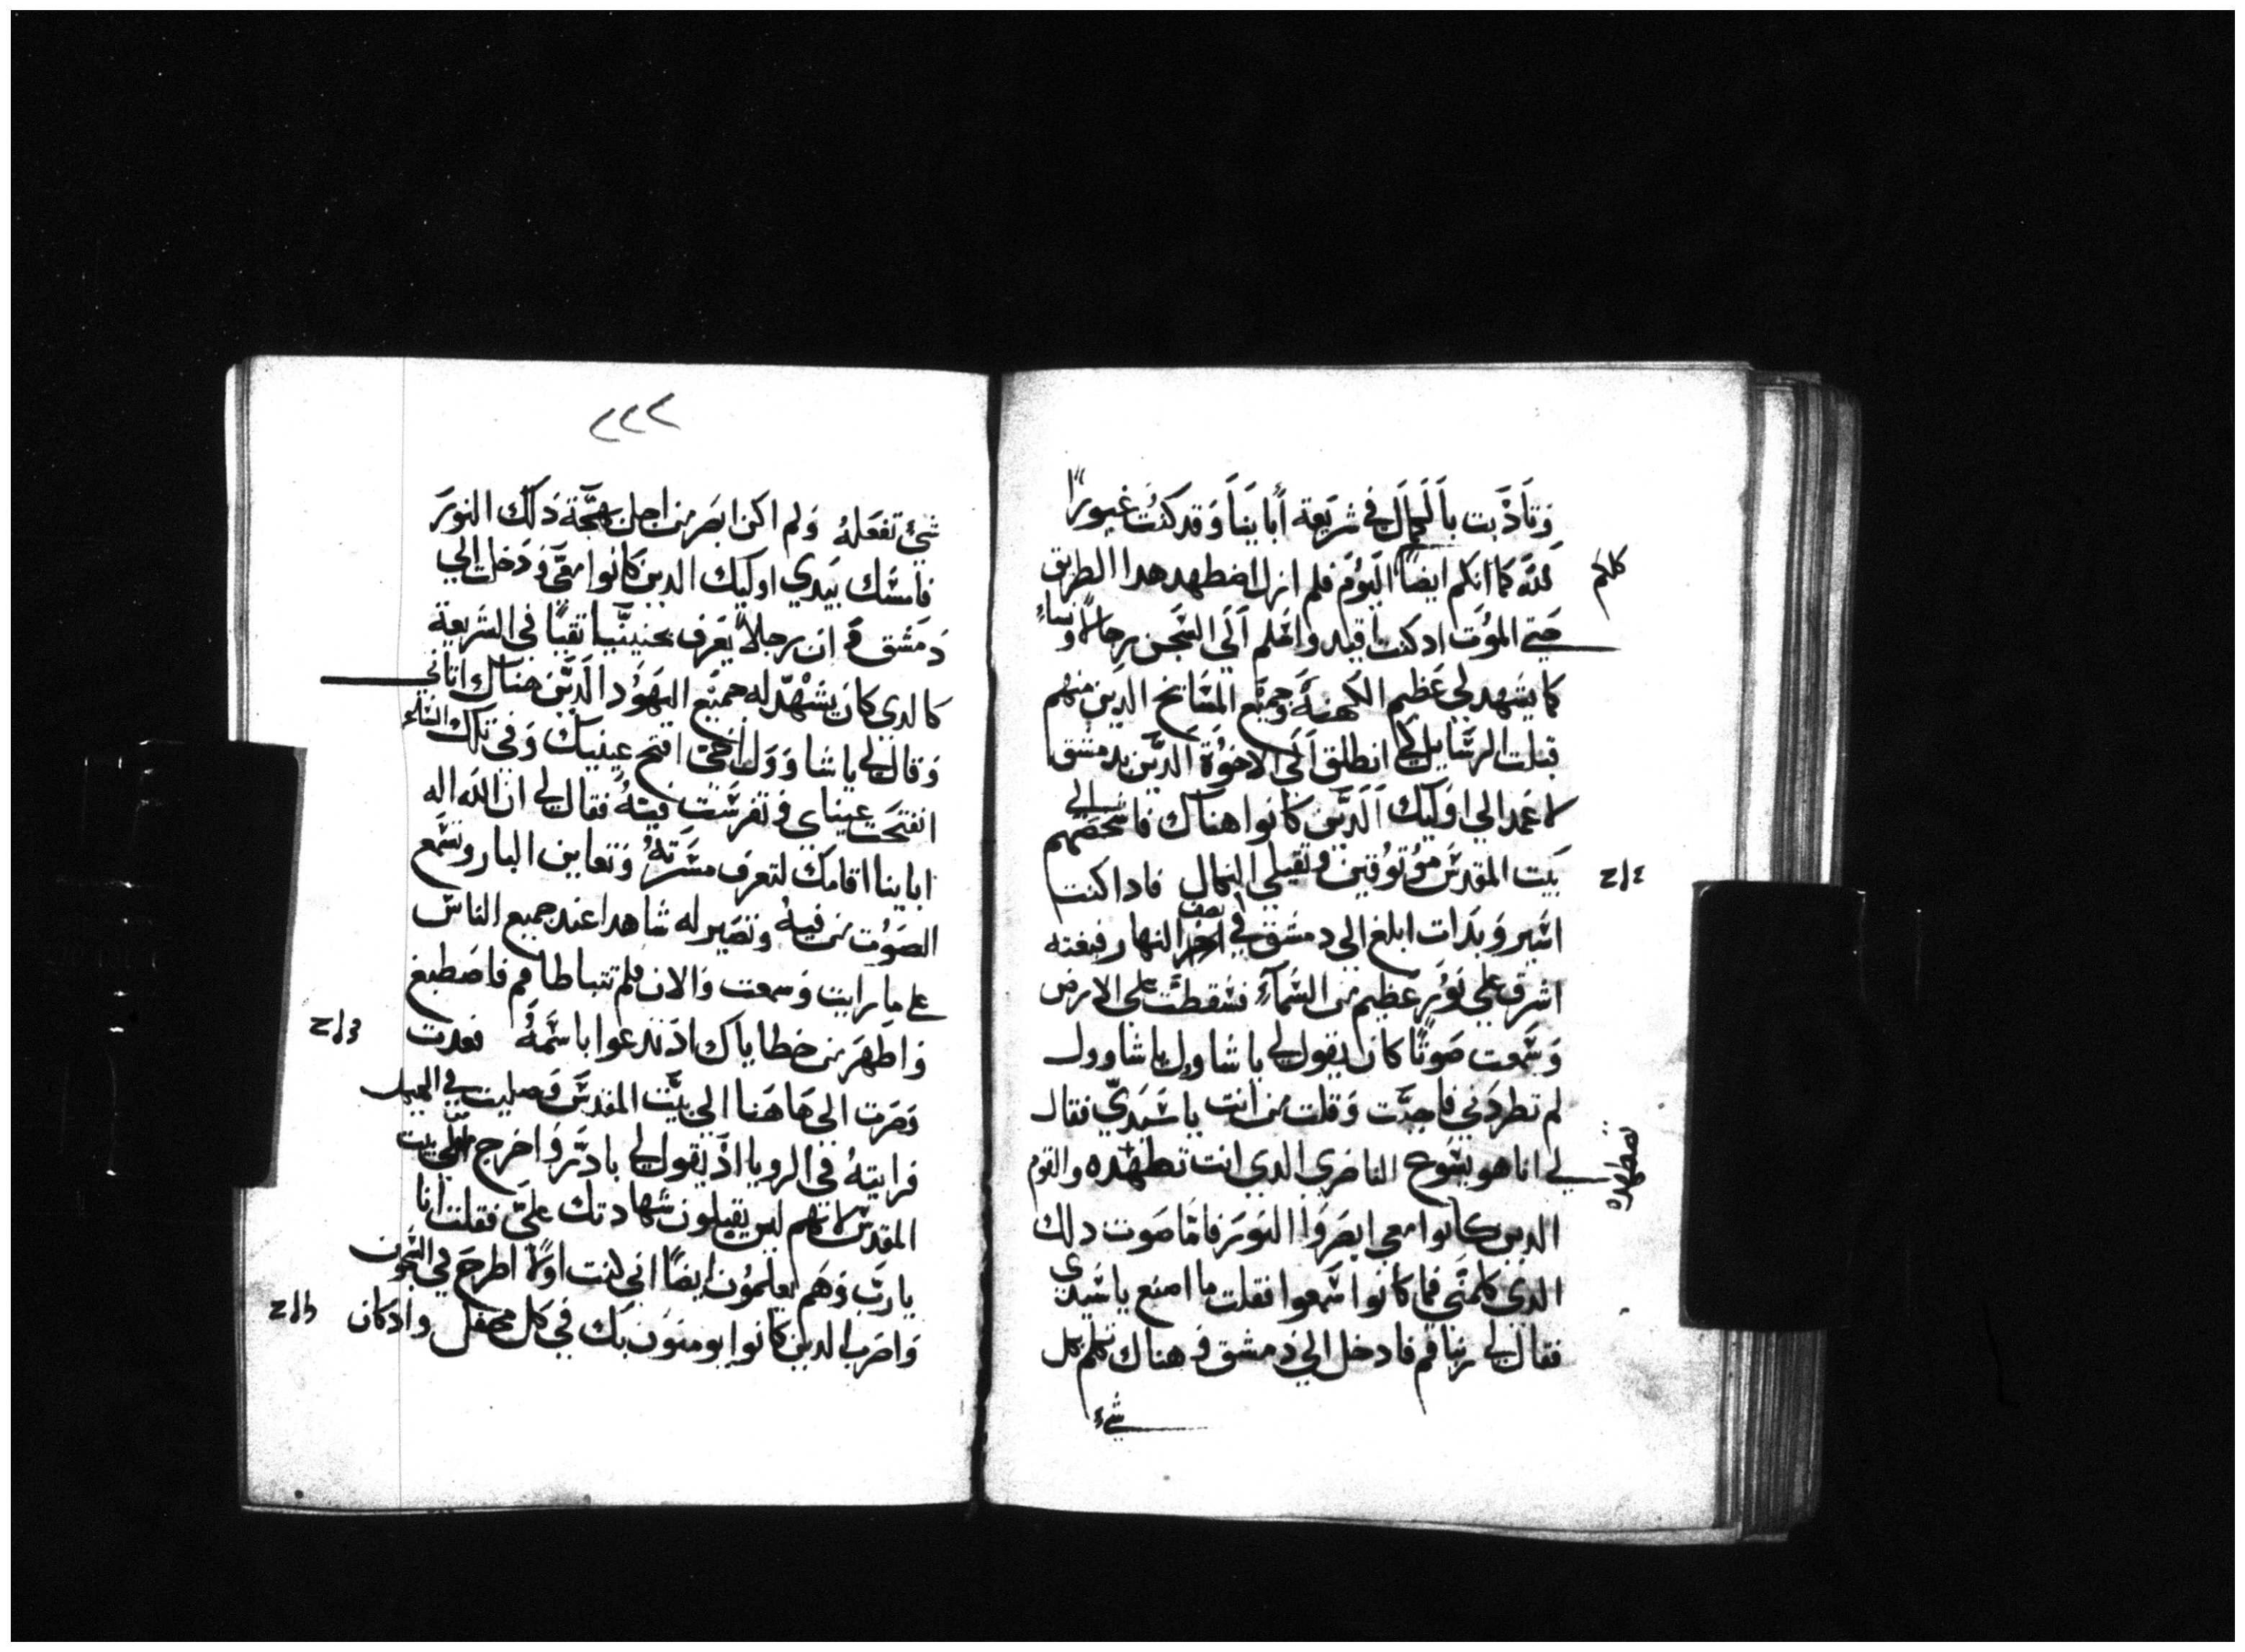 وَتاَدَّبت باَلَكمالَ في شرَيعة أَبا يناَ وَقد كنتُ غيورًا
للّه كما انكم ايضاً اليَوُمَ فلم ازل اضطهد هدا الطريق
كلكم
حَتي الموُت اد كنت اقيد واسَلم اَلَي السَّجن رجالاً ونساءً
كما يشهد لي عَظيم الكهنةَ وَجميَع المشَايخ الدَين منهم
قبلت الرسَايل لكي انطلق اَلَي الاخوُة الدَّين بدمشق
لاعمد الي اوَليك اَلَدَّين كانوا هناك فاشخصَهم الي
بَيت المقدسَ موُتوُقين وَيقبلوا النكال فادا كنت
٤ا٢
اسَير وَبَدَات ابلغ الي دمشَق في نصف النهار فبغته
اشرق علي نوُر عظيم من السَّماَءِ فسَقطتَ علي الارض
وَسَمعت صَوتًا كان يقول لي يا شاوَل يا شاوول
لم تطردَني فاجبَت وَقلت من انت يا سَيَدي فقال
لي انا هو يسَوع الناصَري الدي انت تضطهدَه والقوم
تضطهده
الدين كانوا معي ابصَروَا النورَ فامَا صَوت دلك
الدي كلمنَي فما كانوا سَمعوا فقلت ما اصنع يا سَيدي
فقال لي ربنا قم فادخل الي دَمشق وَ هناك تكلم بكل
شيء
٢٢٢
شيٌ تفعَلهُ وَلم اكن ابصَر من اجل بهجَة دَلك النورَ
فامسَك بَيدي اوليك الدين كانوا معَي وَدَخلت الي
دَمشَق وَ ان رجلاً يعَرف بحنينيَّا تقيًا في الشريعة
كالدي كان يشَهدّ له جميَع اليَهوُد الَدَّين هناك اتاني
وَقال لي يا شاوَوَل اخيَ افتح عَينيك وَفي تلك السَاعهَ
انفتحَت عيناي وَتفرسَت فيهُ فقال لي ان اللّه اله
اباينا اقامك لتعرف مسَرتهُ وَتعاين البار وَتسَمع
الصَوُت من فيهُ وَتصَير له شاهدا عند جميع الناسَ
علي ما رايت وَسمعت وَالان فلم تتباطا قم فاصَطبغ
وَاطهَر من خطاياك ادَ تدعوا باسَمهُ فعدت
٣ا٢
وَصَرت الي هاهَنا الي بيَّت المقدسَ وَصليت في الهيكل
فرايتهُ في الرويا ادَ يقول لي بادَر وَاخرج من بيت
المقدس لانهم ليس يقبلون شهادتك عليَ فقلت انا
يا ربَ وَهَم يعلموُن ايضاً اني كنت اولاً اطرحَ في السَجون
وَاضرَب الدين كانوا يومنون بك في كل محفل وادكان